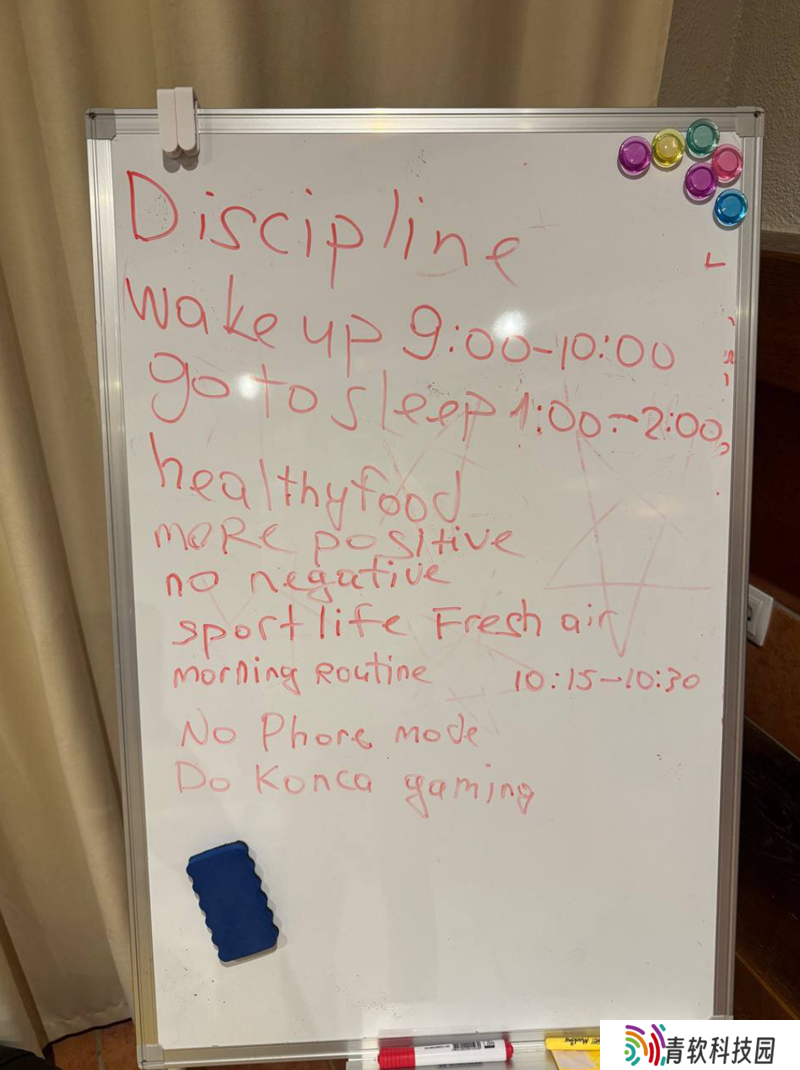 Discipline
wake up 9:00-10:00
go to sleep 1:00-2:00
healthy food
more positive
no negative
sport life Fresh air
morning Routine 10:15-10:30
No Phone mode
Do Konca gaming
青软科技园